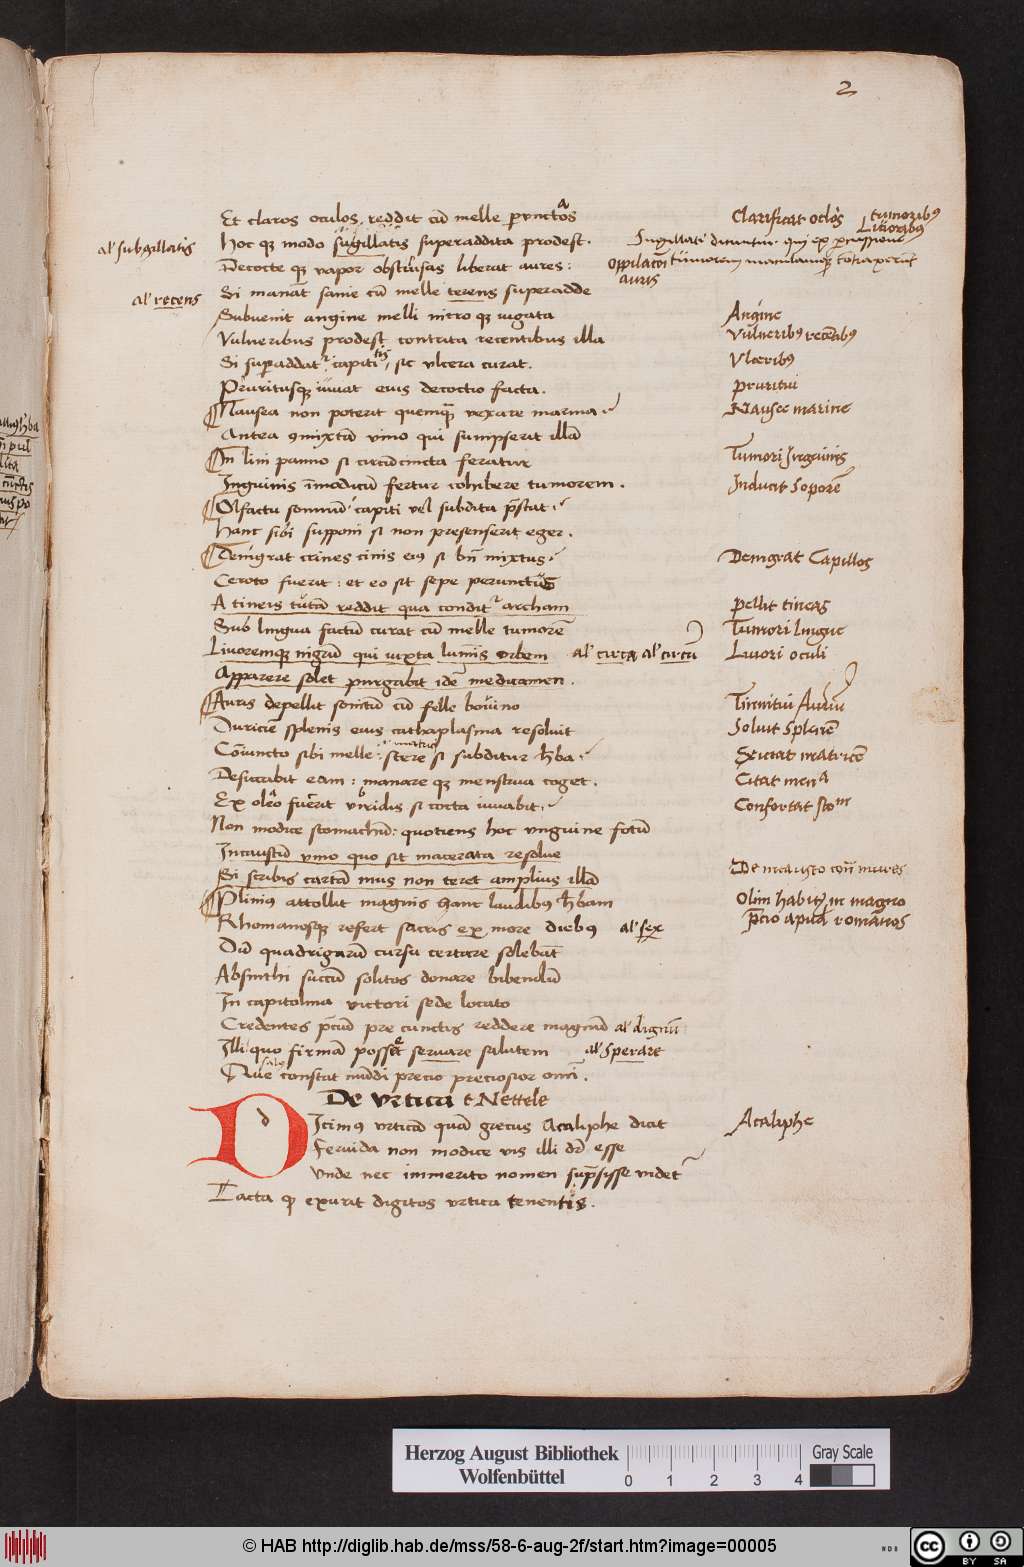 2
Et claros oculos reddit cū melle perunctos
Hoc qȝ modo sugillatis superaddita prodest.
Decocte qȝ vapor obstrusas liberat aures:
Si manāt sanie cū melle terens superadde
Subuenit angine melli nitro qȝ iugata
Vulneribus prodest contrita recentibus illa
Si superaddatr capiti, sic vlcera curat.
Pruritusqȝ iuuat eius decoctio facta.
Nausea non poterit quemqȝ vexare marina
Antea gmixtā vino qui sumpserit illā
In lini panno si circūcincta feratur
Inguinis īmodicū fertur cohibere tumorem.
Olfactu somnū capiti vel subdita p̄stat
Hanc sibi supponi si non presenserit eger.
Denigrat crines cinis ei9 si bn̄ mixtus
Ceroto fuerit: et eo sit sepe perunctus
A tineis tutā reddit qua conditr archam
Sub lingua factū curat cū melle tumorē
Liuoremqȝ nigrū qui iuxta luminis orbem al' circa al' circū
Apparere solet purgabit idē medicamen.
Auris depellit sonitū cū felle bouino
Duriciē splenis eius cathaplasma resoluit
Coniuncto sibi melle: si subditur hba
Desiccabit eam: manare qȝ menstrua coget.
Ex oleo fuerit viridis si cocta iuuabit
Non modice stomachū: quotiens hoc vnguine fotū
Incaustū vino quo sit macerata resolue
Si scribis cartā mus non teret amplius illā
Plini9 attollit magnis hanc laudib9 hbam
Rhomanosqȝ refert sacris ex more dieb9 al' sex
Dū quadrigarū cursu certare solebāt
Absinthi succū solitos donare bibendū
In capitolina victori sede locato
Credentes p̄ciū pre cunctis reddere magnū al' dignū
Illi quo firmā posset seruare salutem al' sperare
Que constat mūdi precio preciosior omi.
De vrtica t Nettele
Dicim9 vrticā quā grecus Acaliphe dicit
Feruida non modice vis illi dr̄ esse
Vnde nec immerito nomen sup̄sisse videtr
Tacta qȝ exurit digitos vrtica tenentis.
al' subgillatis
al' recens
Clarificat oclos
tumoribȝ
Liuoribȝ
Oppilacōi
auris
Angine
Vulneribȝ recētibȝ
Vlceribȝ
Pruritui
Nausee marine
Tumori Inguinis
Inducit Soporē
Denigrat Capillos
pellit tineas
Tumori lingue
Liuori oculi
Tinnitui Auriū
Soluit Splenē
Siccat matricē
Citat mena
Confortat stom
De incausto cont mures
Olim habit in magno
p̄cio apud romanos
Acaliphe
Herzog August Bibliothek
Wolfenbüttel
0 1 2 3 4
Gray Scale
© HAB http://diglib.hab.de/mss/58-6-aug-2f/start.htm?image=00005
cc BY SA